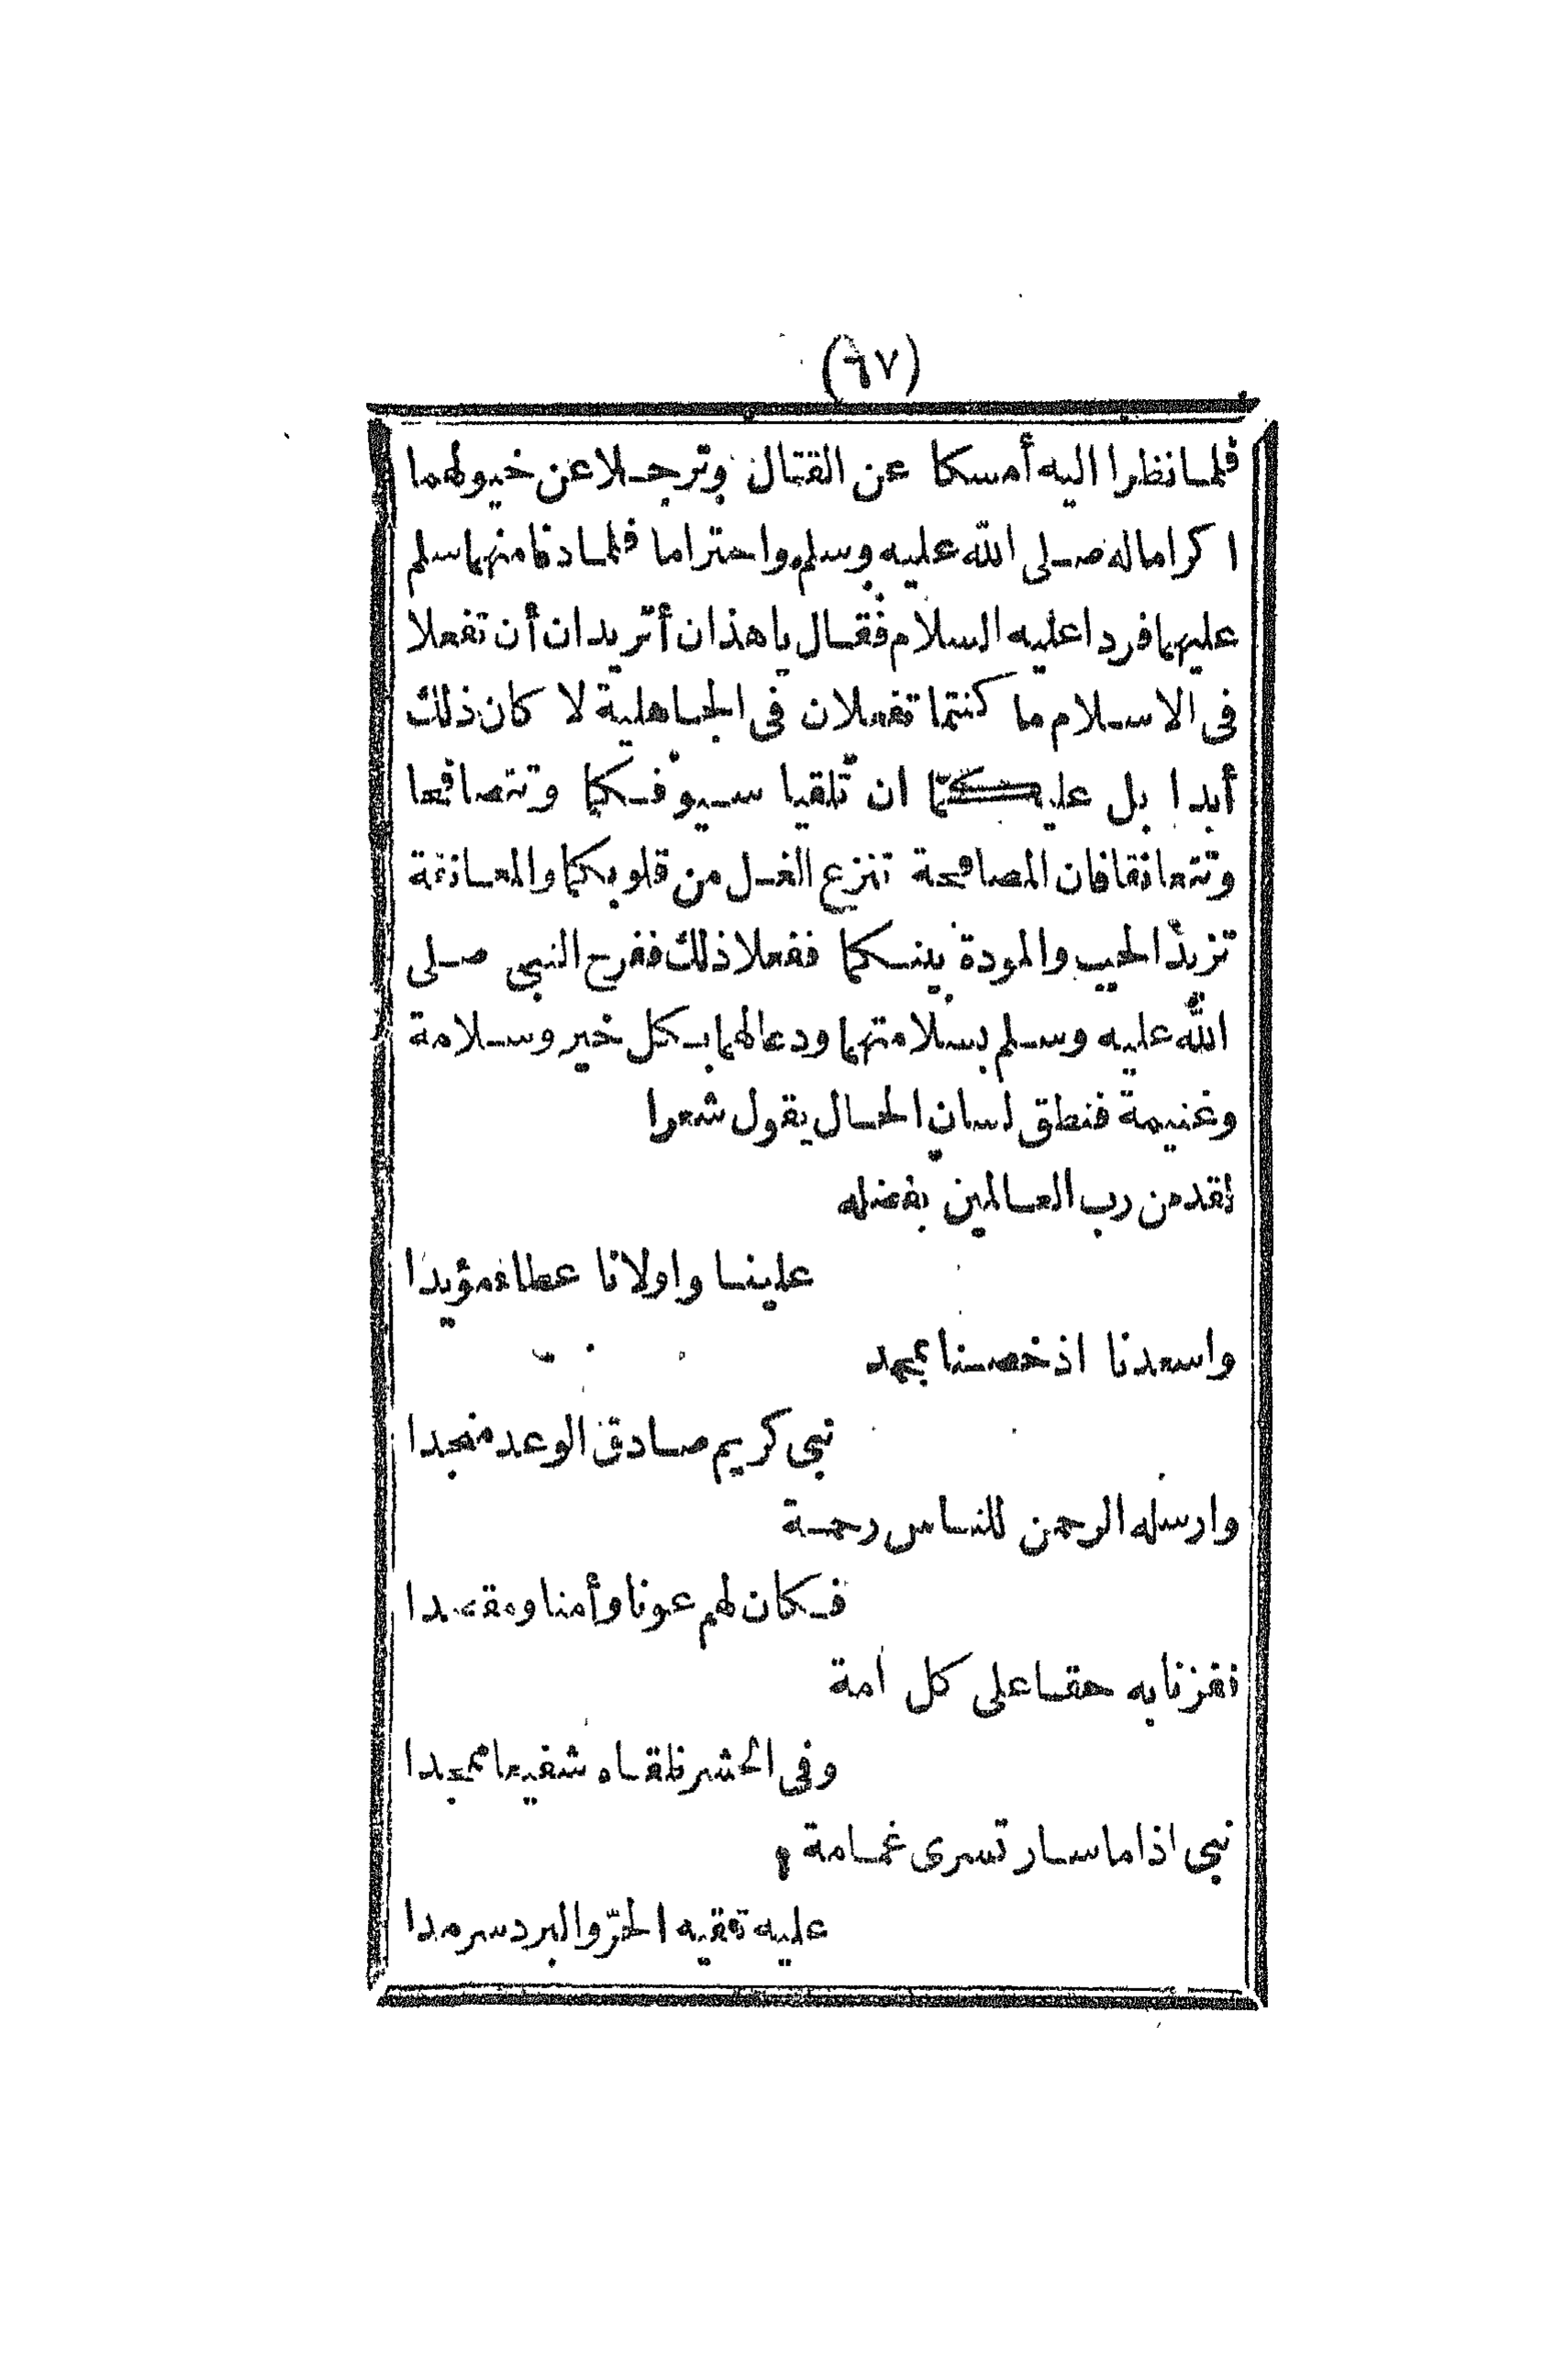 (٦٧)
فلما نظرا اليه أمسكا عن القتال وترجلا عن خيولهما
اكراما له صلى الله عليه وسلم واحتراما فلما دنا منهما سلم
عليهما فردا عليه السلام فقال يا هذان أتريدان أن تفعلا
فى الاسلام ما كنتما تفعلان فى الجاهلية لا كان ذلك
أبدا بل عليكما ان تلقيا سيوفكما وتتصافحا
وتتعانقا فان المصافحة تنزع الغل من قلوبكما والمعانقة
تزيد الحب والمودة بينكما ففعلا ذلك ففرح النبى صلى
الله عليه وسلم بسلامتهما ودعا لهما بكل خير وسلامة
وغنيمة فنطق لسان الحال يقول شعرا
لقد من رب العالمين بفضله
علينا واولانا عطاء مؤيدا
واسعدنا اذ خصنا بمحمد
نبى كريم صادق الوعد منجدا
وارسله الرحمن للناس رحمة
فكان لهم عونا وأمنا ومقصدا
نفزنا به حقا على كل امة
وفى الحشر نلقاه شفيعا ممجدا
نبى اذا ما سار تسرى غمامة
عليه تقيه الحرّ والبرد سرمدا